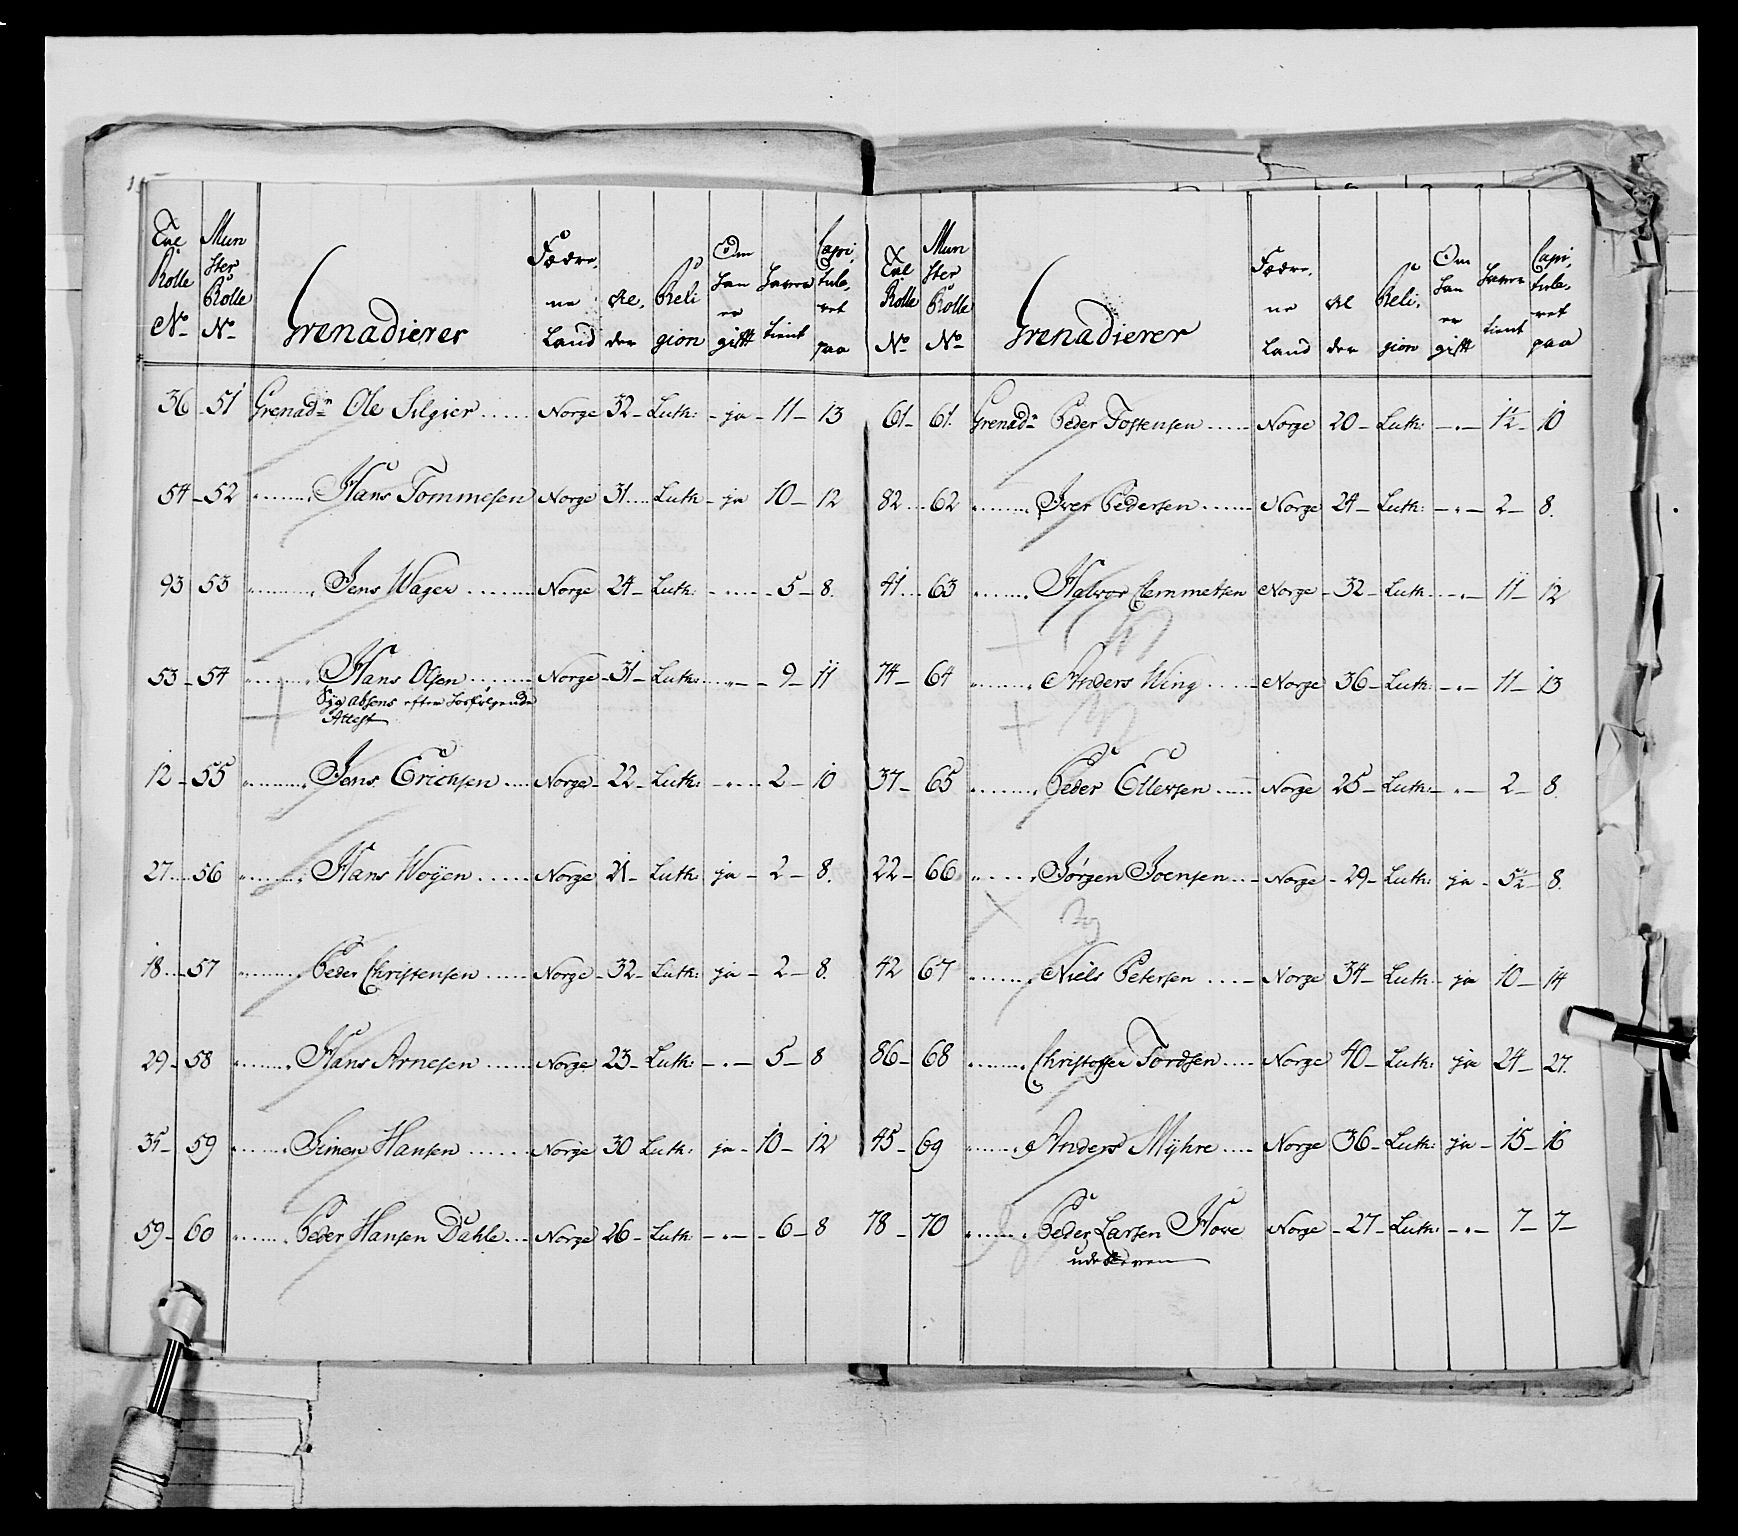 Grenadierer
36 - 51 Grenadr Ole Silgier ...... Norge 32 - Luth: - ja - 11 - 13
54 - 52 ......... Hans Tommesen Norge 31 .... Luth - ja 10 - 12
93 53 ......... Jens Wager ......... Norge 24 - Luth: - . - - 5 - 8.
53 - 54 ......... Hans Olsen ......... Norge - 31 - Luth: .... - - 9 - 11
Attest
12 - 55 ......... Jens Erichsen .... Norge - 22 - Luth: - . - 2 - 10
27 .... 56 ......... Hans Woÿen ...... Norge 21 - Luth ja - 2 - 8.
18 .... 57 ......... Peder Christensen ...... Norge - 32 - Luth: ja - 2 - 8.
29 - 58 ......... Hans Arnesen ...... Norge 23 - Luth: - . - 5 - 8
35 - 59 ......... Simen Hansen ...... Norge 30 Luth: ja - 10 - 12
59 - 60 ......... Peder Hansen Dahle ... Norge 26 - Luth: - . - - 6 - 8
Grenadierer
61 - 61. Grenadr Peder Tostensen ..... Norge 20 - Luth: - . - 1½ - 10
82 ... 62 ......... Iver Pedersen ...... Norge 24 - Luth: - . - 2 - 8.
41 ... 63 ......... Halvor Clemmetsen Norge - 32 - Luth: - . - 11 - 12
74 - 64 ......... Anders Wing ..... Norge 36 - Luth: - . - 11 - 13
37 - 65 ......... Peder Ellersen ..... Norge 25 - Luth: - . - 2 - 8.
22 - 66 ......... Jørgen Joensen ... Norge - 29 - Luth: ja - 5½ - 8.
42 67 ......... Niels Petersen .... Norge 34 - Luth: - ja 10 - 14
86 - 68 ......... Christoffer Tordsen .... Norge 40 - Luth: ja 24 - 27.
45 - 69 ......... Anders Mÿhre .... Norge 36 - Luth: ja - 15 - 16
78 - 70 ......... Peder Larsen Hove Norge - 27 - Luth: - . - 7 - 7 -